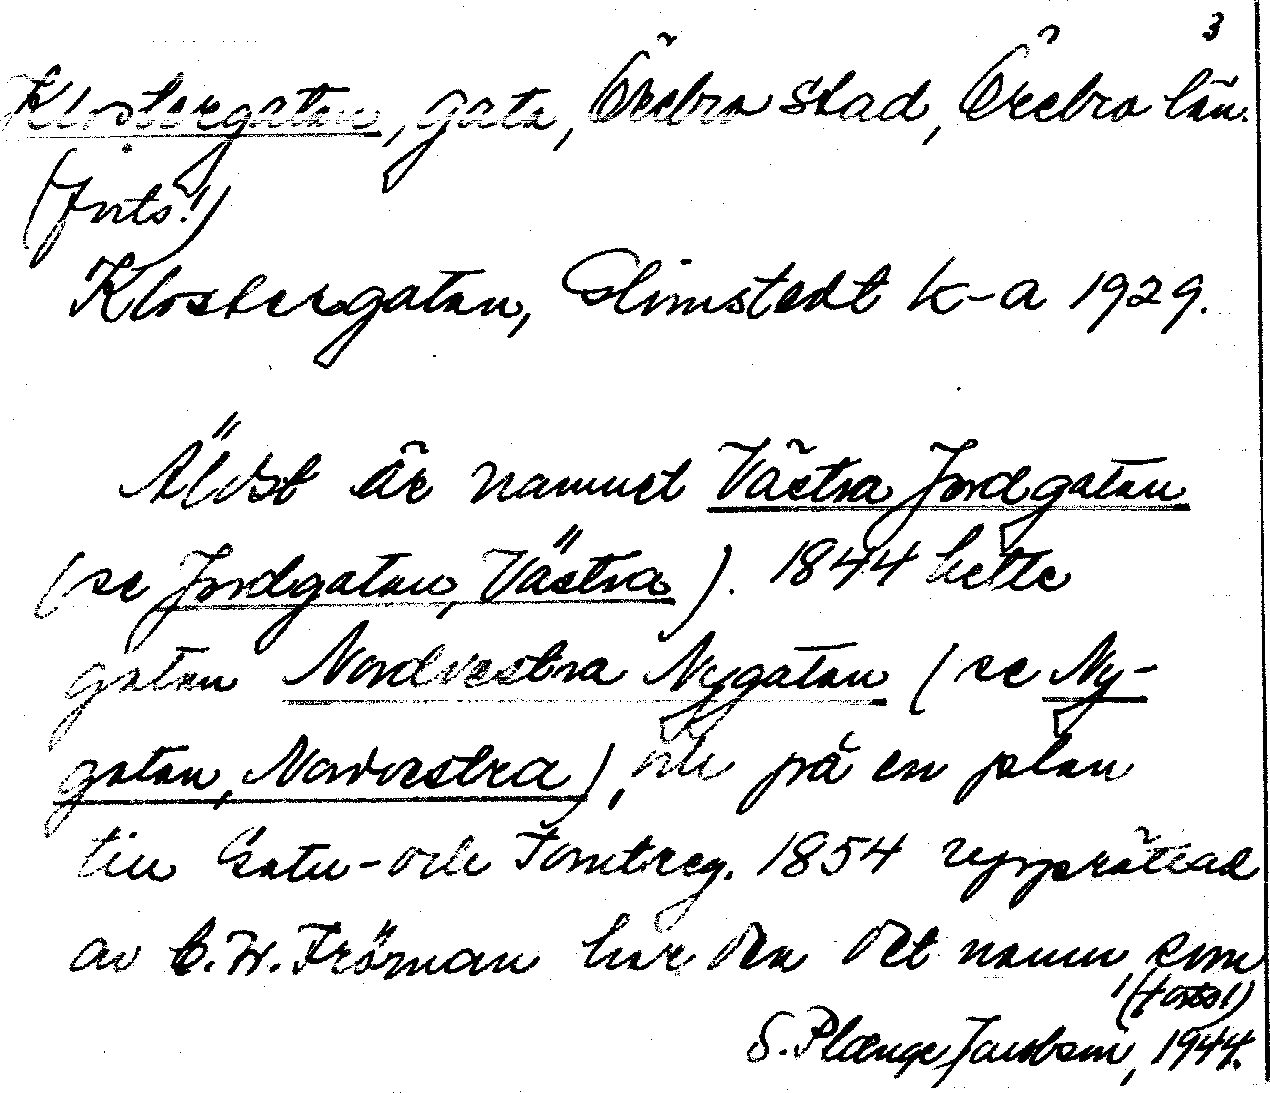 3
Klostergatan, gata, Örebro stad, Örebro län.
(forts.!)
Klostergatan, Elimstedt k-a 1929.
Äldst är namnet Västra Jordgatan
(se Jordgatan, Västra). 1844 hette
gatan Nordvestra Nygatan (se Ny-
gatan, Nordvestra), och på en plan
till Gatu- och Tomtreg. 1854 upprättad
av C. W. Fröman har den det namn, som
(forts!)
S. Plænge Jacobson, 1944.